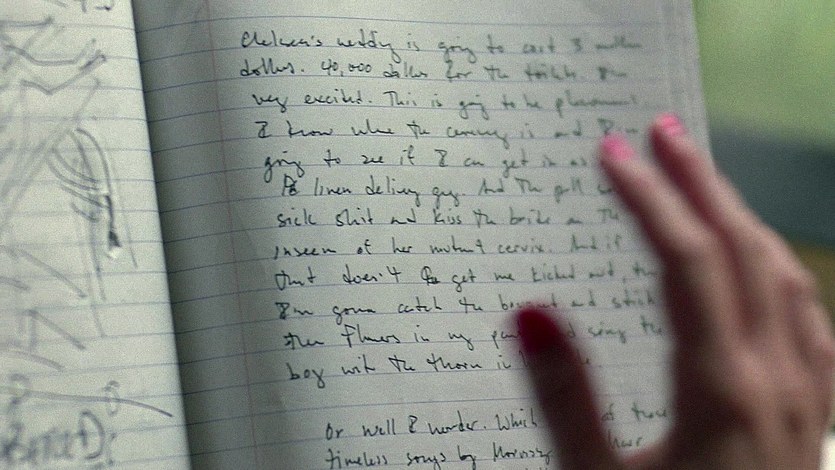 Chelsea's wedding is going to cost 3 million
dollars. 40,000 dollars for the toilets. I'm
very excited. This is going to be phenomenal.
I know where the ceremony is and I'm
going to see if I can get in as
linen delivery guy. And the pull
sick shit and kiss the bride on the
inseam of her mutant cervix. And if
that doesn't get me kicked out,
I'm gonna catch the bouquet and stick
them flowers in my and sing the
boy with the thorn in
Or well I wonder. Which of these
timeless songs by Morrissey